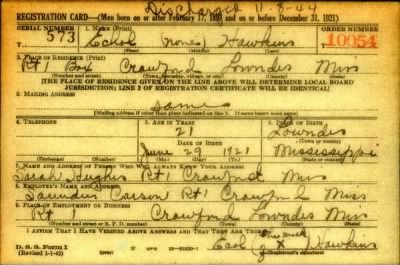 Discharged 11-8-44
REGISTRATION CARD—(Men born on or after February 17, 1897 and on or before December 31, 1921)
SERIAL NUMBER 1. NAME (Print) ORDER NUMBER
573 Echol (none) Hawkins 10054
(First) (Middle) (Last)
2. PLACE OF RESIDENCE (Print)
Rt 1 Box Crawford Lowndes Miss
(Number and street) (Town, township, village, or city) (County) (State)
[THE PLACE OF RESIDENCE GIVEN ON THE LINE ABOVE WILL DETERMINE LOCAL BOARD
JURISDICTION; LINE 2 OF REGISTRATION CERTIFICATE WILL BE IDENTICAL]
3. MAILING ADDRESS
Same
[Mailing address if other than place indicated on line 2. If same insert word same]
4. TELEPHONE 5. AGE IN YEARS 6. PLACE OF BIRTH
21 Lowndes
DATE OF BIRTH (Town or county)
June 29 1921 Mississippi
(Exchange) (Number) (Mo.) (Day) (Yr.) (State or country)
7. NAME AND ADDRESS OF PERSON WHO WILL ALWAYS KNOW YOUR ADDRESS
Sarah Hughes Rt 1 Crawford Miss
8. EMPLOYER'S NAME AND ADDRESS
Saunders Carson Rt 1 Crawford Miss
9. PLACE OF EMPLOYMENT OR BUSINESS
Rt 1 Crawford Lowndes Miss
(Number and street or R. F. D. number) (Town) (County) (State)
I AFFIRM THAT I HAVE VERIFIED ABOVE ANSWERS AND THAT THEY ARE TRUE.
D. S. S. Form 1
(Revised 1-1-42) Echol his mark X Hawkins